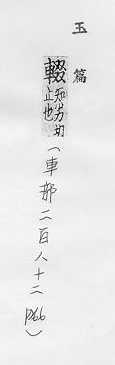 玉篇
輟知劣切止也(車部二百八十二 P66)